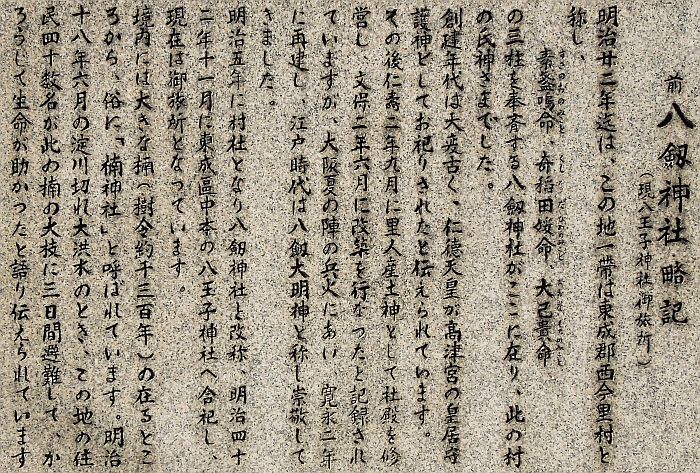 前 八剱神社略記
(現八王子神社御旅所)
明治廿二年迄は、この地一帯は東成郡西今里村と
称し、
素盞嗚命、奇稲田姫命、大己貴命
の三柱を奉斉する八剱神社がここに在り、此の村
の氏神さまでした。
創建年代は大変古く、仁徳天皇が高津宮の皇居守
護神としてお祀りされたと伝えられています。
その後仁寿二年九月に里人産土神として社殿を修
営し、文保二年六月に改築を行なつたと記録され
ていますが、大阪夏の陣の兵火にあい 寛永二年
に再建し、江戸時代は八剱大明神と称し崇敬して
きました。
明治五年に村社となり八剱神社と改称 明治四十
二年十一月に東成區中本の八王子神社へ合祀し、
現在は御旅所となつています。
境内には大きな楠(樹令約千三百年)の在るとこ
ろから、俗に「楠神社」と呼ばれています。明治
十八年六月の淀川切れ大洪水のとき、この地の住
民四十数名が此の楠の大枝に三日間避難して、か
ろうじて生命が助かつたと語り伝えられています